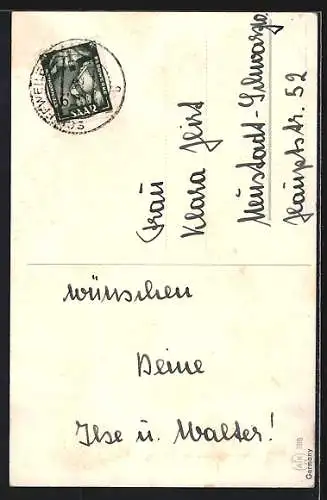 SAAR
Frau
Klara Heist
Neustadt-Schwarzw
Hauptstr. 52
wünschen
Deine
Ilse u. Walter!
Germany